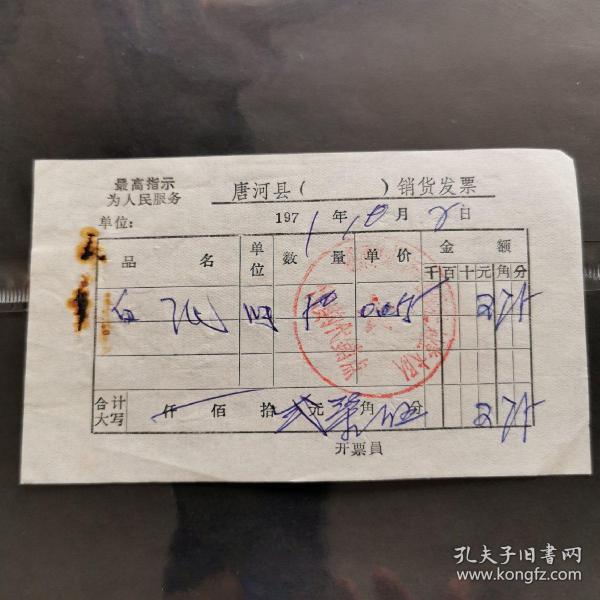 最高指示
为人民服务
唐河县( )销货发票
单位:
1971年10月2日
品名 单位 数量 单价 金额
千百十元角分
白纸 50 0.055 275
合计大写 仟佰拾贰元柒角伍分 275
开票員
孔夫子旧书网
www.kongfz.com